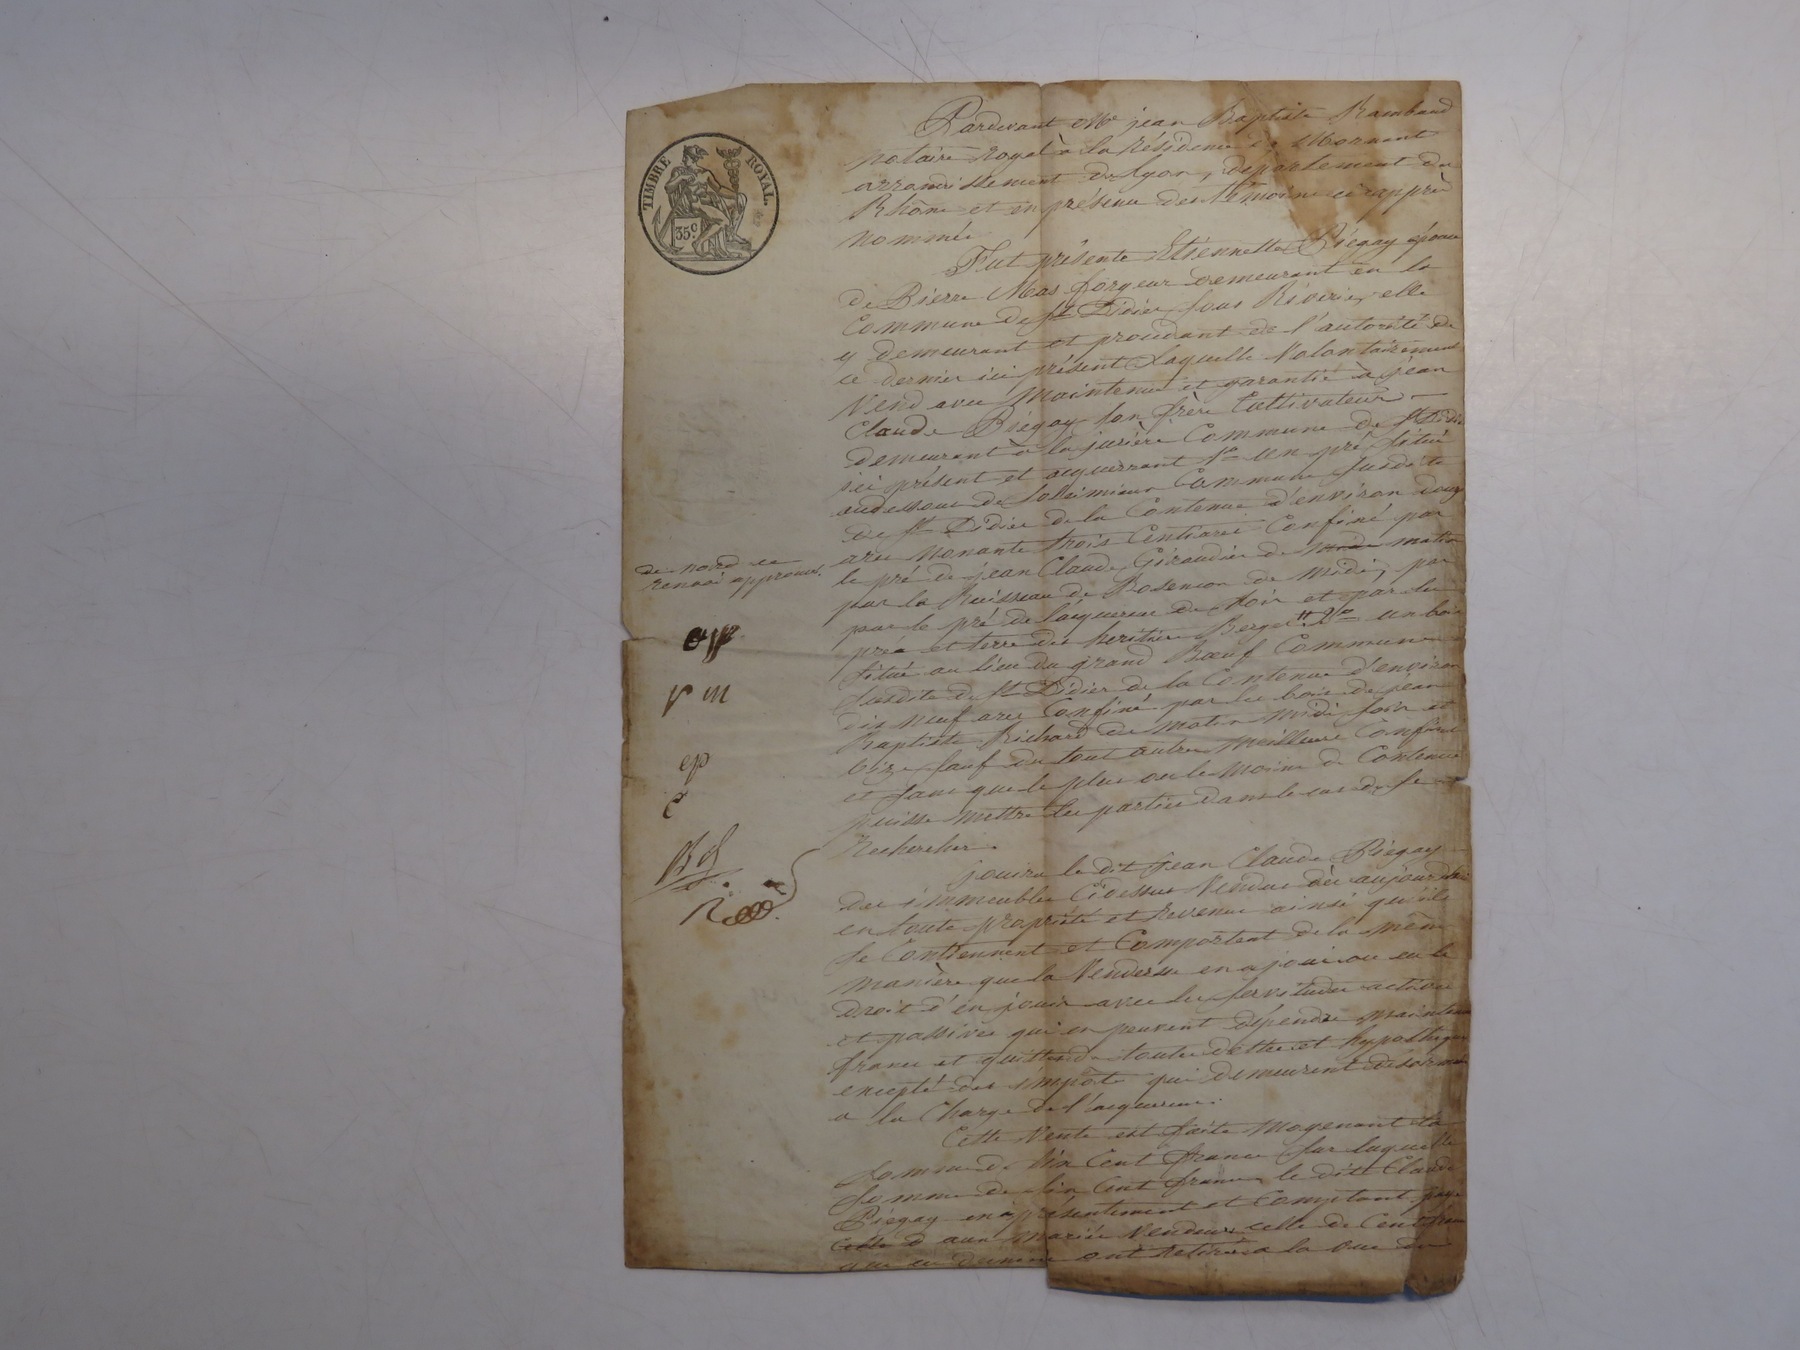 TIMBRE ROYAL.
35c
Pardevant Me jean Baptiste Rambaud
notaire royal à la résidence de Mornant
arrondissement de lyon, département du
Rhône et en présence des témoins ci après
nommés
Fut présente Etiennette Piégay épouse
de Pierre Mas forgeur demeurant en la
Commune de St Didier sous Riverie, elle
y demeurant et procédant de l'autorité de
ce dernier ici présent Laquelle Volontairement
Vend avec Maintenue et garantie à jean
Claude Piégay son frère Cultivateur
demeurant à la Commune de St Didier
ici présent et acquerrant 1o un pré situé
audessous de Commune susdite
de St Didier de la Contenue d'environ douze
ares nonante trois Centiares Confiné par
le pré de jean Claude Giraudier de midi matin
par le Ruisseau de Bosencon de Midi, par
par le pré de l'acquereur de Soir et par les
prés et terre des heritiers Berger 2o un bois
situé au lieu du grand Bœuf Commune
susdite de St Didier de la Contenue d'environ
dix neuf ares Confiné par les bois de jean
Baptiste Richard de matin Midi Soir et
bize sauf du tout autres Meilleurs Confins
et sans que le plus ou le Moins de Contenue
puisse Mettre les parties dans le cas de se
Rechercher.
jouira le dit jean Claude Piégay
des immeubles Cidessus Vendus dès aujourd'hui
en toute propriété et Revenus ainsi qu'ils
se Contiennent et Comportent de la même
manière que la Venderesse en a joui ou eu le
droit d'en jouir avec les servitudes actives
et passives qui en peuvent dépendre maintenus
francs et quittes de toutes dettes et hypothèques
excepté des impôts qui demeurent désormais
a la Charge de l'acquereur.
Cette Vente est faite Moyenant la
Somme de Six Cent francs sur laquelle
Somme de Six Cent francs le dit Claude
Piégay en a présentement et Comptant payé
Celle d aux Mariés Vendeurs celle de Cent francs
que ces derniers ont Retirés a la vue du
de nord ce
renvoi approuvé.
P m
ep
C